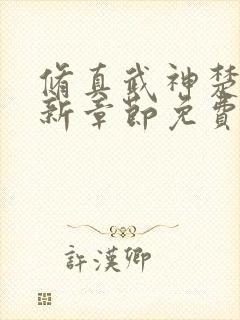 脩真武神楚
新章節免費
許漢卿